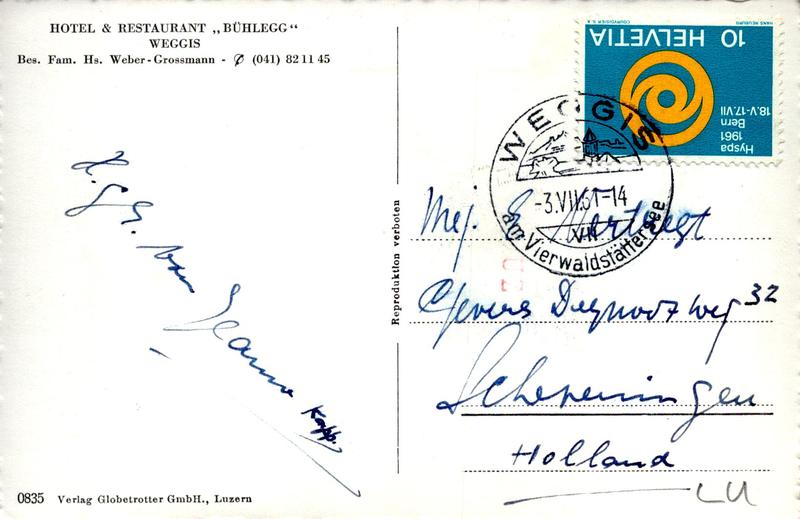 HOTEL & RESTAURANT „BÜHLEGG“
WEGGIS
Bes. Fam. Hs. Weber-Grossmann - ✆ (041) 82 11 45
H. G. S. van
Jeanne
Kopp.
Reproduktion verboten
COURVOISIER S.A.
HANS NEUBURG
HELVETIA 10
Hyspa
1961
Bern
18.V-17.VII
WEGGIS
-3.VII.61-14
VIII
am Vierwaldstättersee
Mej. E.
Gevers Deynoot weg 32
Scheveningen
Holland
LU
0835 Verlag Globetrotter GmbH., Luzern